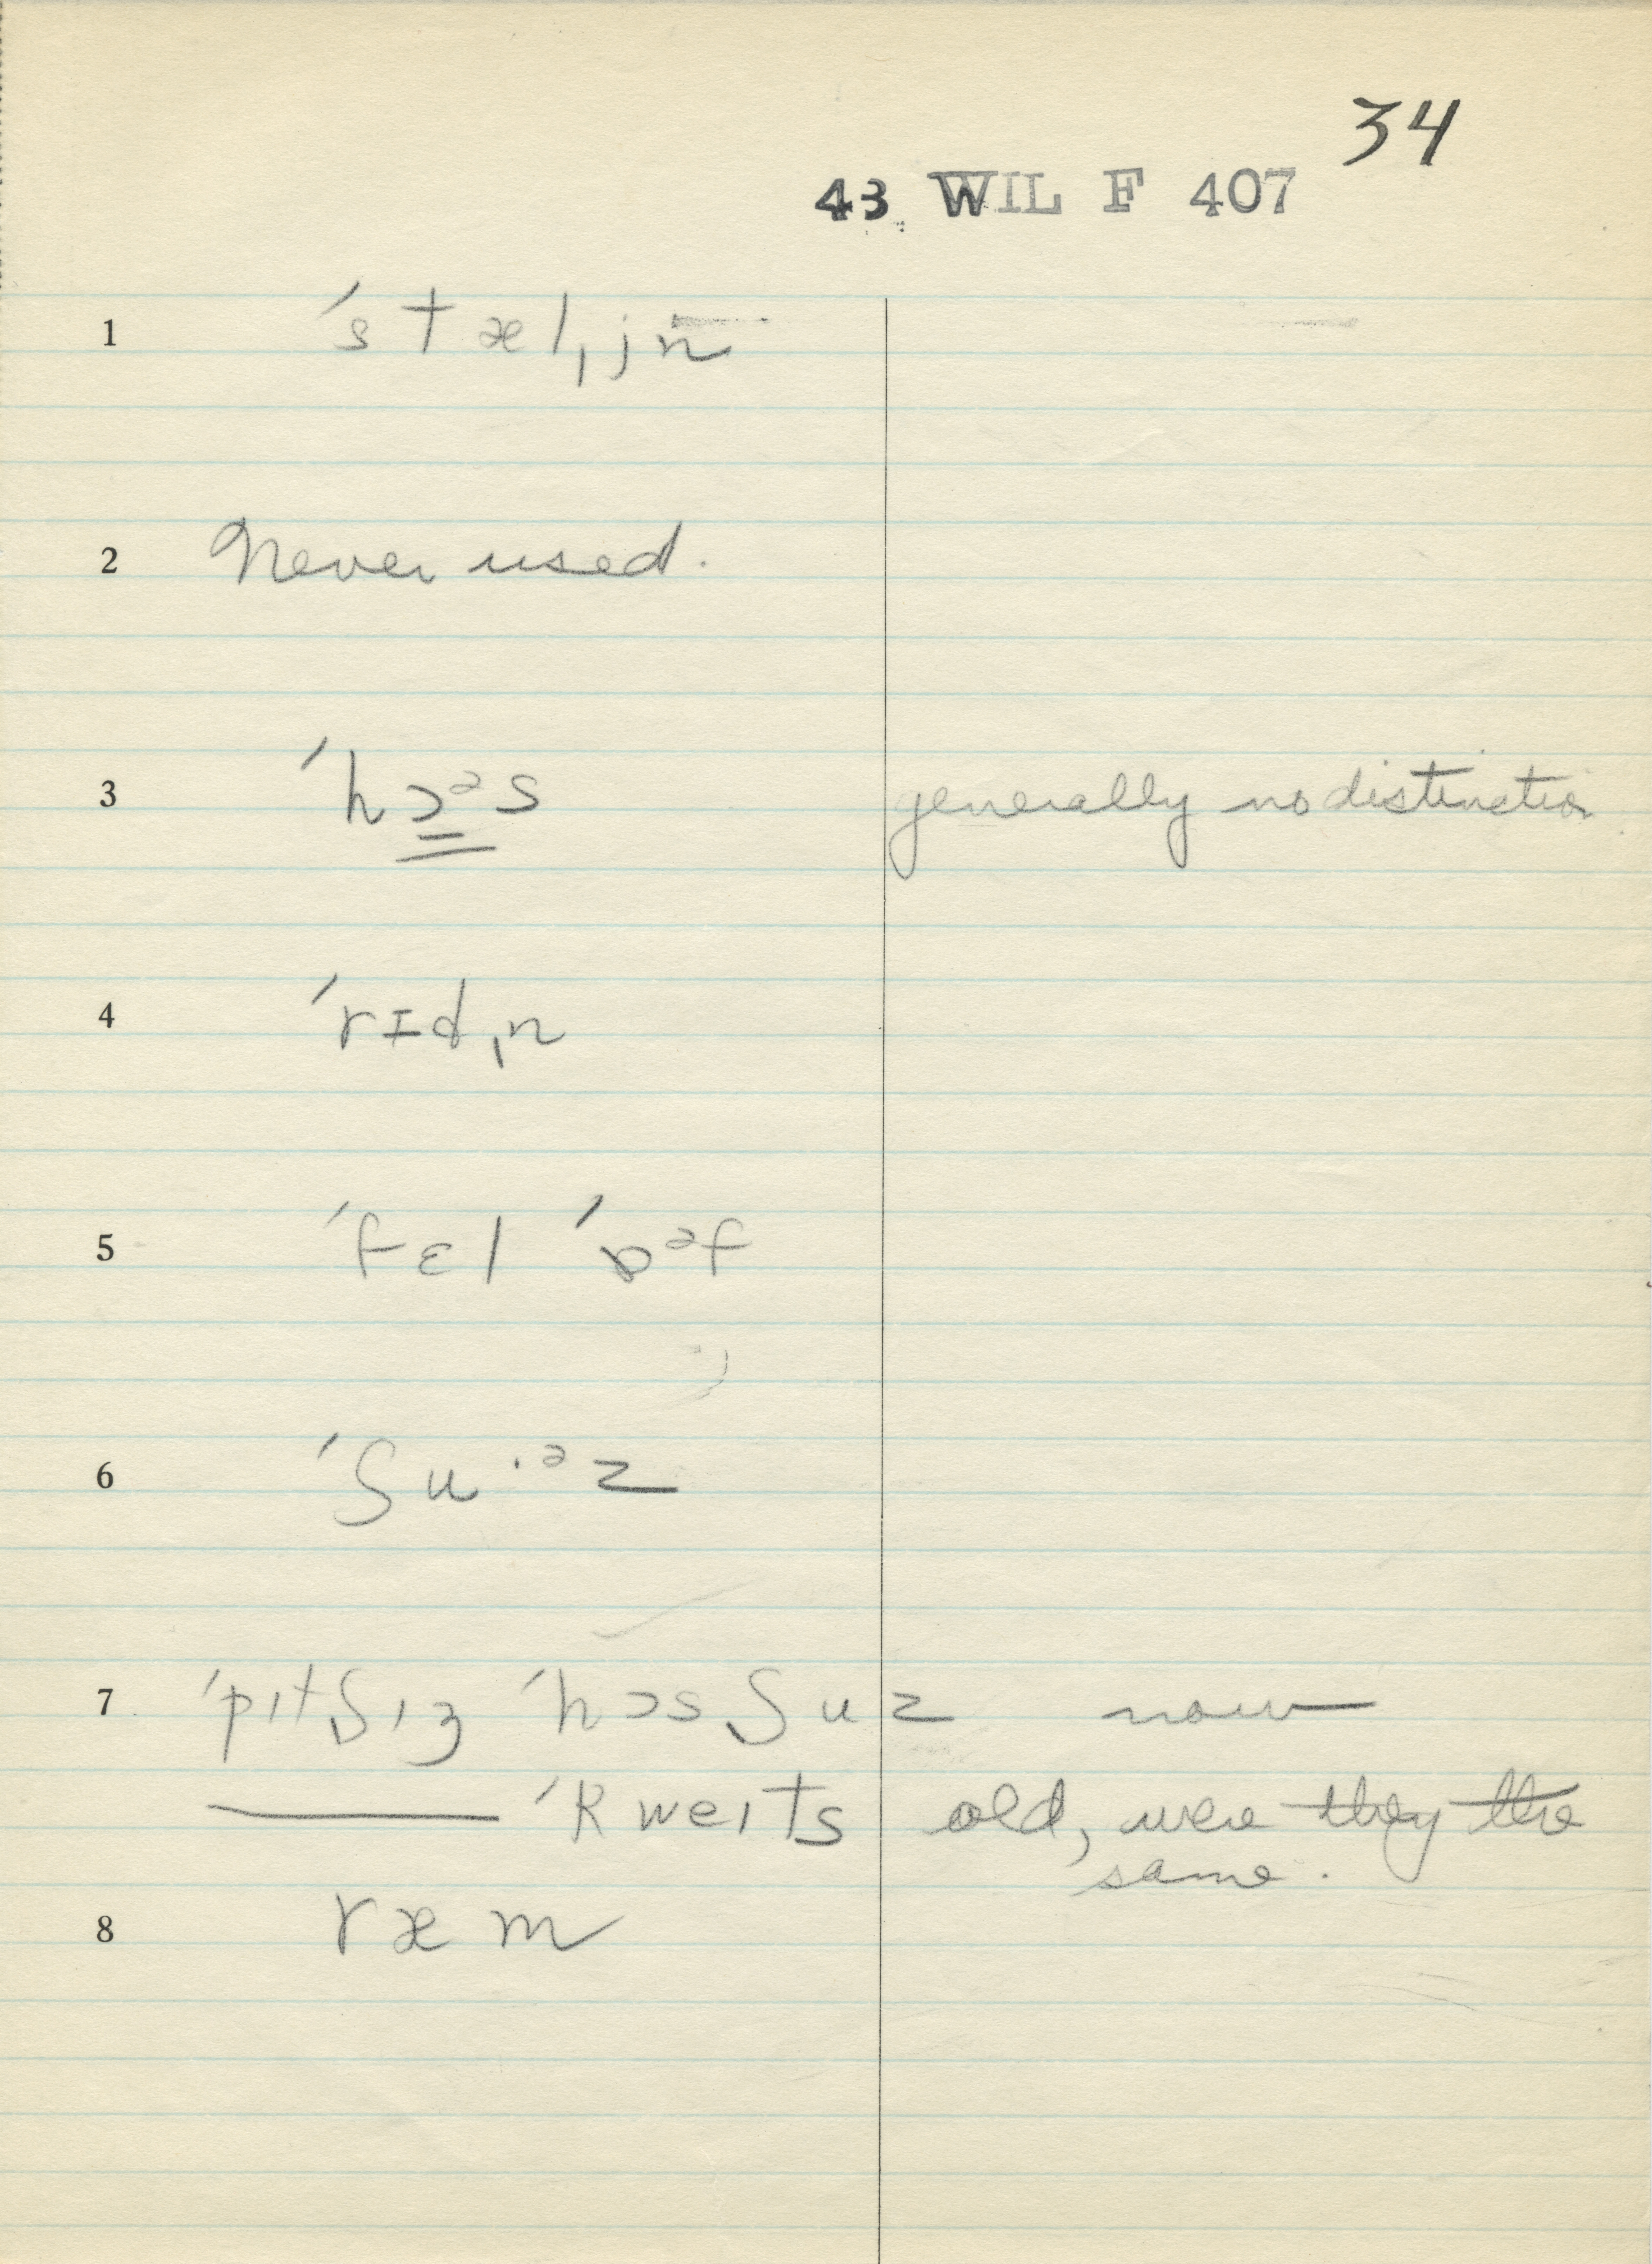 34
43 WIL F 407
1 ˈstæl̩jn̄
2 Never used.
3 ˈhɔᵊs generally no distinction
4 ˈrɪdn̩
5 ˈfɛl ˈɒᵊf
6 ˈʃuˑᵊz
7 ˈpɪtʃɪz ˈhɔsʃuz now
——— ˈkweɪts old, were they the
same.
8 ræm